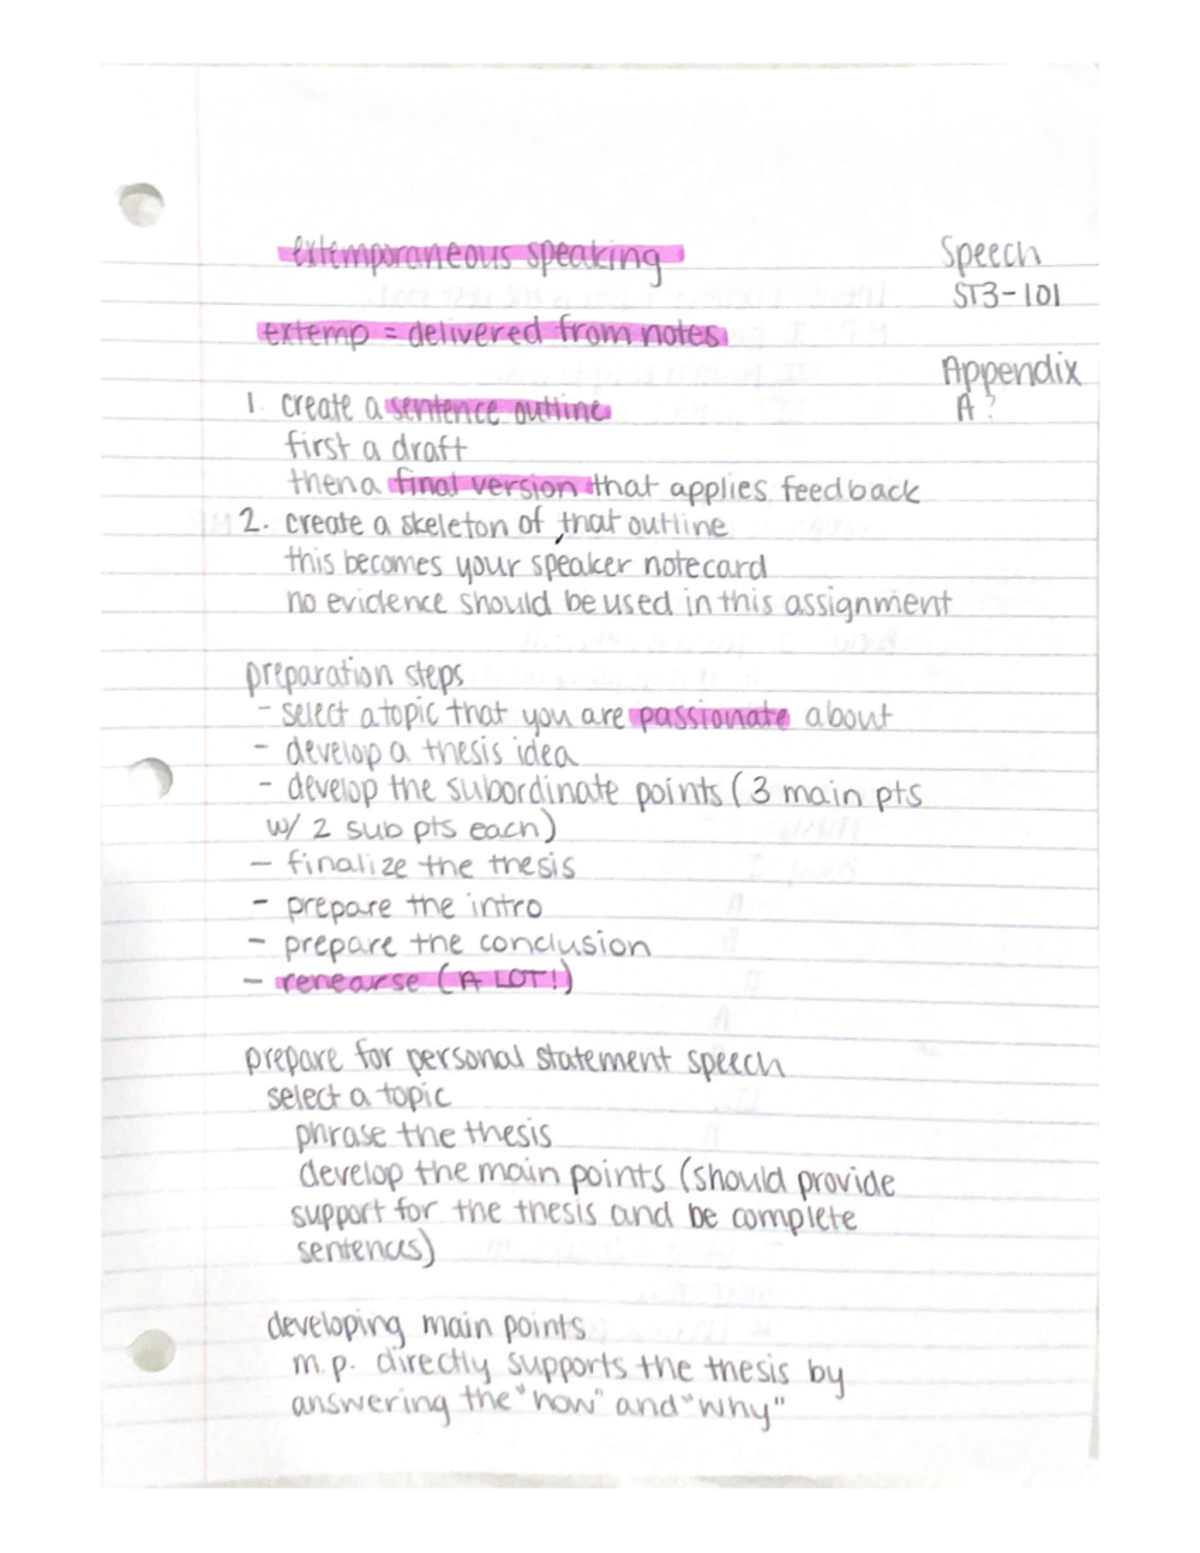 extemporaneous speaking
Speech
ST3-101
extemp = delivered from notes
Appendix
A?
1. create a sentence outline
first a draft
then a final version that applies feedback
2. create a skeleton of that outline
this becomes your speaker notecard
no evidence should be used in this assignment
preparation steps
- select a topic that you are passionate about
- develop a thesis idea
- develop the subordinate points (3 main pts
w/ 2 sub pts each)
- finalize the thesis
- prepare the intro
- prepare the conclusion
- rehearse (A LOT!)
prepare for personal statement speech
select a topic
phrase the thesis
develop the main points (should provide
support for the thesis and be complete
sentences)
developing main points
m.p. directly supports the thesis by
answering the "how" and "why"